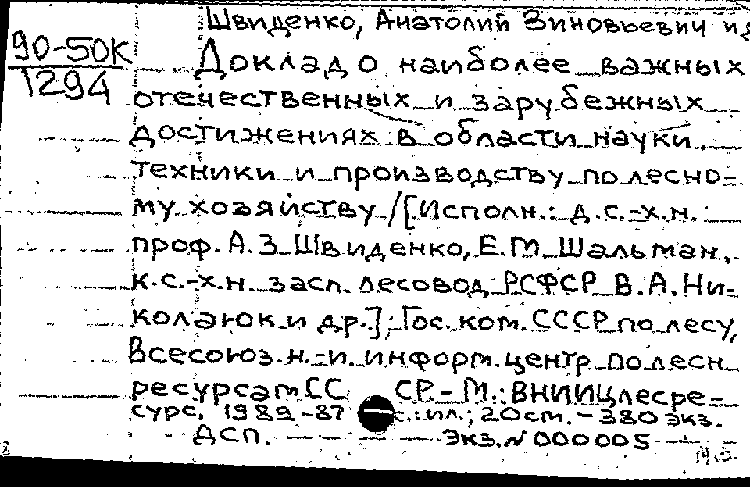 Швиденко, Анатолий Зиновьевич и д
90-50К
1294
Доклад о наиболее важных
отечественных и зарубежных
достижениях в области науки,
техники и производству по лесно-
му хозяйству / [Исполн.: д.с.-х.н.
проф. А.З Швиденко, Е.М Шальман,
к.с.-х.н. засл. лесовод РСФСР В.А. Ни-
колаюк и др.]; Гос. ком. СССР по лесу,
Всесоюз. н.-и. информ. центр по лесн
ресурсам СС СР - М.: ВНИИЦлесре-
сурс, 1989 - 87 с.: ил.; 20 см. - 380 экз.
ДСП. Экз. № 000005